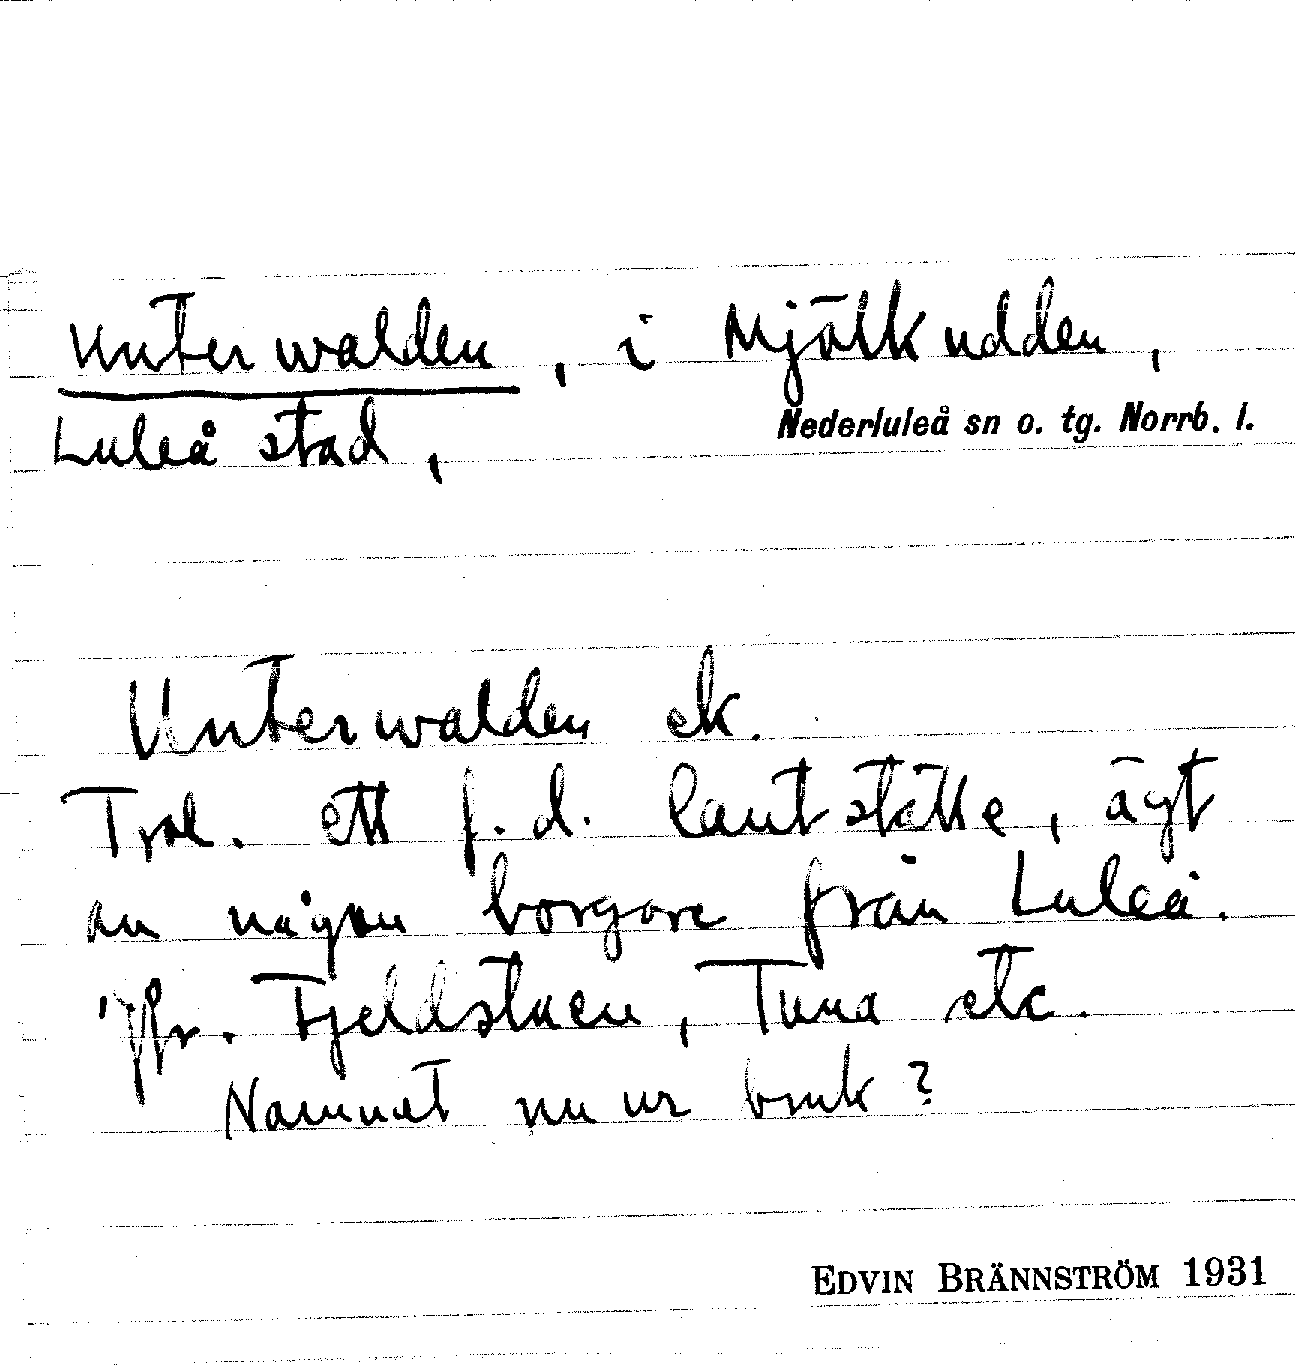 Unterwalden, i Mjölkudden,
Luleå stad, Nederluleå sn o. tg. Norrb. l.
Unterwalden ek.
Trol. ett f.d. lantställe, ägt
av någon borgare från Luleå.
Jfr. Fjeldstuen, Tuna etc.
Namnet nu ur bruk?
EDVIN BRÄNNSTRÖM 1931